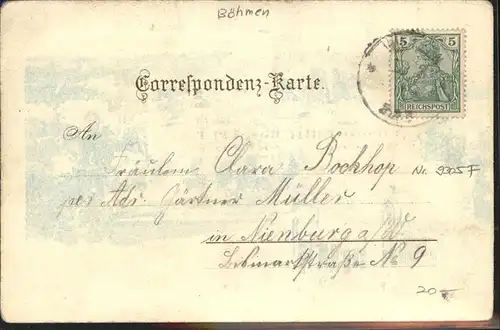 Böhmen
5 5
REICHSPOST
Correspondenz-Karte.
An
Fräulein Clara Bockhop
Nr. 9305 F
per Adr. Gärtner Müller
in Nienburg a/d W
Bismarkstraße No 9
20-